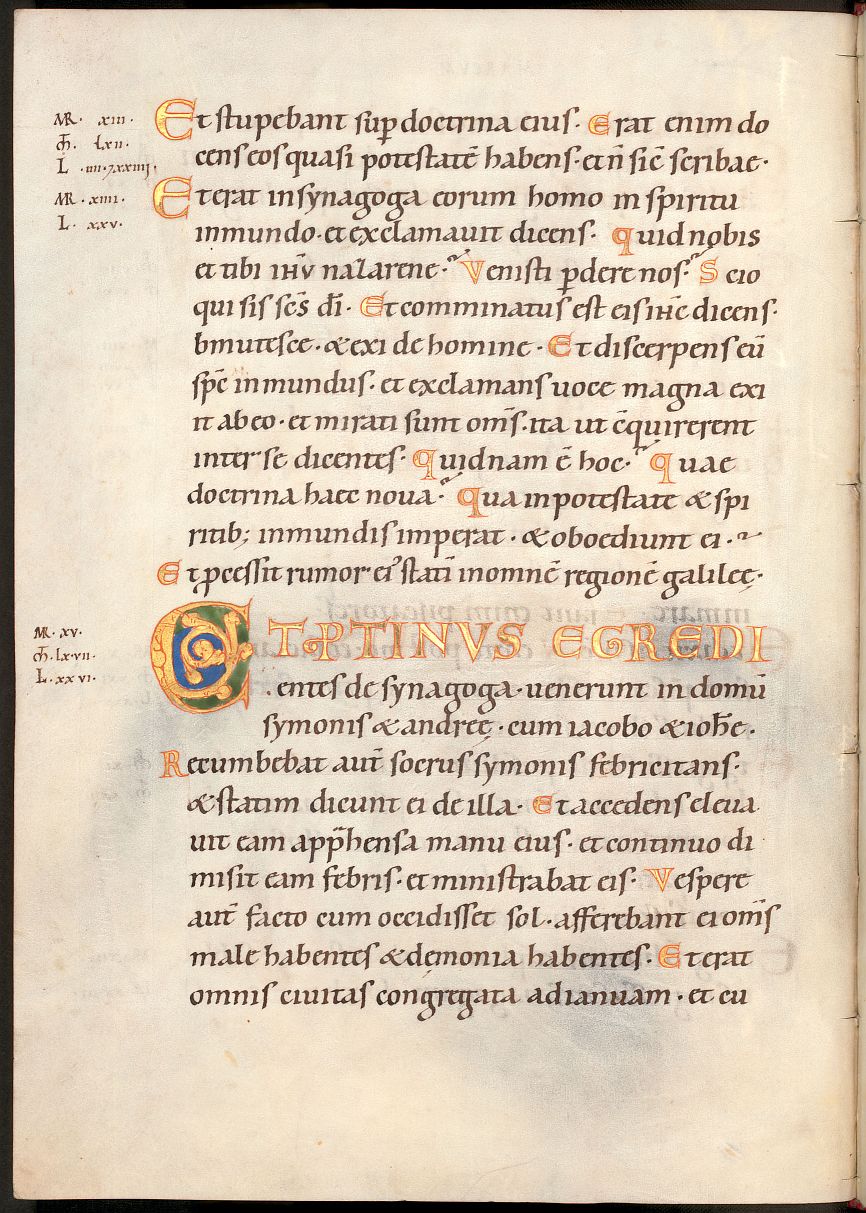 MR · xiii ·
Et stupebant sup̱ doctrina eius · Erat enim do
m̄ · lxii ·
cens eos quasi potestatē habens · et n̄ sic̄ scribae ·
L · iiii · 7 xxiiij ·
MR · xiiii ·
Et erat in synagoga eorum homo in spiritu
L · xxv ·
inmundo · et exclamauit dicens · quid nobis
et tibi ihv nazarene · Venisti ꝑdere nos · Scio
qui sis sc̄s dī · Et comminatus est eis ihc̄ dicens ·
bmutesce · & exi de homine · Et discerpens eū
sp̄c inmundus · et exclamans uoce magna exi
it ab eo · et mirati sunt om̄s · ita ut c̄quirerent
inter se dicentes · quidnam ē hoc · quae
doctrina haec noua · qua in potestate & spi
ritib; inmundis imperat · & oboediunt ei ·
Et p̱cessit rumor ei᾽ statī in omnē regionē galileę ·
MR · xv ·
ET PTINVS EGREDI
m̄ · lxvii ·
L · xxvi ·
entes de synagoga · uenerunt in domū
symonis & andreę · cum iacobo & ioh̄e ·
Recumbebat aut̄ socrus symonis febricitans ·
& statim dicunt ei de illa · Et accedens eleua
uit eam app̄hensa manu eius · et continuo di
misit eam febris · et ministrabat eis · Vespere
aut̄ facto cum occidisset sol · afferebant ei om̄s
male habentes & demonia habentes · Et erat
omnis ciuitas congregata ad ianuam · et cu